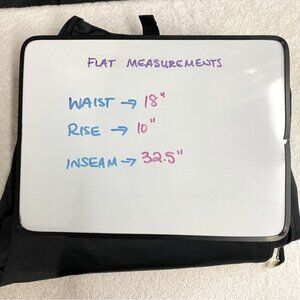 FLAT MEASUREMENTS
WAIST → 18"
RISE → 10"
INSEAM → 32.5"